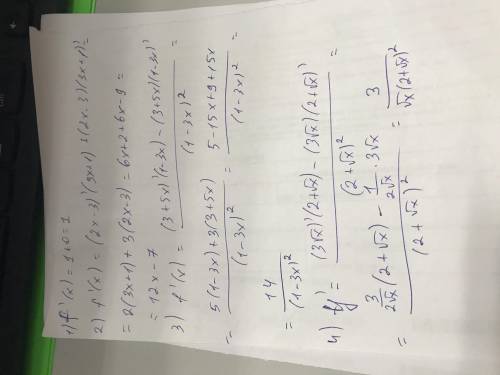 1) f'(x) = 1+0=1
2) f'(x) = (2x-3)'(3x+1)+(2x-3)(3x+1)'=
= 2(3x+1)+3(2x-3) = 6x+2+6x-9 =
= 12x-7
3) f'(x) = ((3+5x)'(1-3x) - (3+5x)(1-3x)')/(1-3x)² =
= (5(1-3x)+3(3+5x))/(1-3x)² = (5-15x+9+15x)/(1-3x)² =
= 14/(1-3x)²
4) y' = ((3√x)'(2+√x) - (3√x)(2+√x)')/(2+√x)² =
= (3/(2√x)(2+√x) - 1/(2√x)·3√x)/(2+√x)² = 3/(√x(2+√x)²)